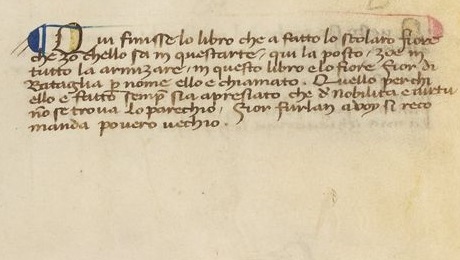 Qui finisse lo libro che a fatto lo scolaro fiore
che zo chello sa in quest arte / qui la posto, zoe in
tutto la armizare, in questo libro e lo fiore. Fior di
Bataglia p nome ello e chiamato. Quello perchi
ello e fatto semp sia apresiato che d nobilita e virtu
nō se trova lo parechio, Fior furlan a voy si reco
manda povero vechio.